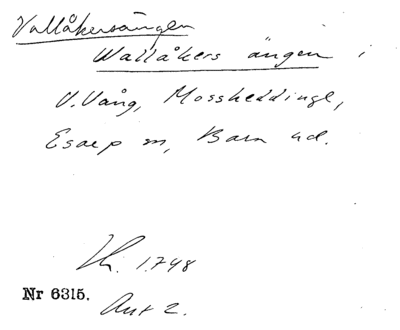 Vallåkersängen
Wallåkers ängen i
V. Vång, Mossheddinge,
Esarp m, Bara hd.
Lh. 1748
Nr 6315.
Akt 2.